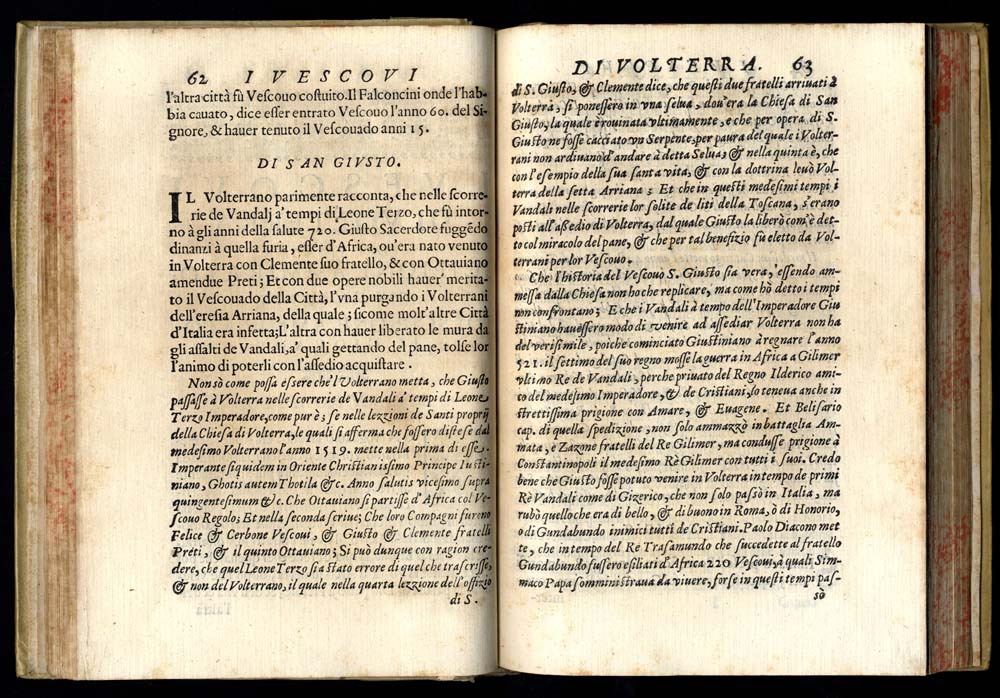 62 I VESCOVI
l'altra città fù Vescouo costuito. Il Falconcini onde l'hab-
bia cauato, dice esser entrato Vescouo l'anno 60. del Si-
gnore, & hauer tenuto il Vescouado anni 15.
DI SAN GIVSTO.
IL Volterrano parimente racconta, che nelle scorre-
rie de Vandalj a' tempi di Leone Terzo, che fù intor-
no à gli anni della salute 720. Giusto Sacerdote fuggẽdo
dinanzi à quella furia, esser d'Africa, ou'era nato venuto
in Volterra con Clemente suo fratello, & con Ottauiano
amendue Preti; Et con due opere nobili hauer' merita-
to il Vescouado della Città, l'vna purgando i Volterrani
dell'eresia Arriana, della quale; sicome molt'altre Città
d'Italia era infetta; L'altra con hauer liberato le mura da
gli assalti de Vandali, a' quali gettando del pane, tolse lor
l'animo di poterli con l'assedio acquistare.
Non sò come possa essere che'l Volterrano metta, che Giusto
passasse à Volterra nelle scorrerie de Vandali a' tempi di Leone
Terzo Imperadore, come pur è; se nelle lezzioni de Santi proprij
della Chiesa di Volterra, le quali si afferma che fossero distese dal
medesimo Volterrano l'anno 1519. mette nella prima di esse.
Imperante siquidem in Oriente Christianissimo Principe Iusti-
niano, Ghotis autem Thotila &c. Anno salutis vicesimo supra
quingentesimum &c. Che Ottauiano si partisse d'Africa col Ve-
scouo Regolo; Et nella seconda scriue; Che loro Compagni fureno
Felice & Cerbone Vescoui, & Giusto & Clemente fratelli
Preti, & il quinto Ottauiano; Si può dunque con ragion cre-
dere, che quel Leone Terzo sia stato errore di quel che trascrisse,
& non del Volterrano, il quale nella quarta lezzione dell'offizio
di S.
DI VOLTERRA. 63
di S. Giusto, & Clemente dice, che questi due fratelli arriuati à
Volterra, si ponessero in vna selua, dou'era la Chiesa di San
Giusto, la quale è rouinata vltimamente, e che per opera di S.
Giusto ne fosse cacciato vn Serpente, per paura del quale i Volter-
rani non ardiuano d'andare à detta Selua; & nella quinta è, che
con l'esempio della sua santa vita, & con la dottrina leuò Vol-
terra della setta Arriana; Et che in questi medesimi tempi i
Vandali nelle scorrerie lor solite de liti della Toscana, s'erano
posti all'assedio di Volterra, dal quale Giusto la liberò com'è det-
to col miracolo del pane, & che per tal benefizio fù eletto da Vol-
terrani per lor Vescouo.
Che l'historia del Vescouo S. Giusto sia vera, essendo am-
messa dalla Chiesa non ho che replicare, ma come hò detto i tempi
non confrontano; E che i Vandali à tempo dell'Imperadore Giu
stiniano hauessero modo di venire ad assediar Volterra non ha
del verisimile, poiche cominciato Giustiniano à regnare l'anno
521. il settimo del suo regno mosse la guerra in Africa a Gilimer
vltimo Re de Vandali, perche priuato del Regno Ilderico ami-
co del medesimo Imperadore, & de Cristiani, lo teneua anche in
strettissima prigione con Amare, & Euagene. Et Belisario
cap. di quella spedizione, non solo ammazzò in battaglia Am-
mata, e Zazone fratelli del Re Gilimer, ma condusse prigione à
Constantinopoli il medesimo Rè Gilimer con tutti i suoi. Credo
bene che Giusto fosse potuto venire in Volterra in tempo de primi
Rè Vandali come di Gizerico, che non solo passò in Italia, ma
rubò quello che era di bello, & di buono in Roma, ò di Honorio,
o di Gundabundo inimici tutti de Cristiani. Paolo Diacono met
te, che in tempo del Re Trasamundo che succedette al fratello
Gundabundo fussero esiliati d'Africa 220 Vescoui, à quali Sim-
maco Papa somministraua da viuere, forse in questi tempi pas-
sò